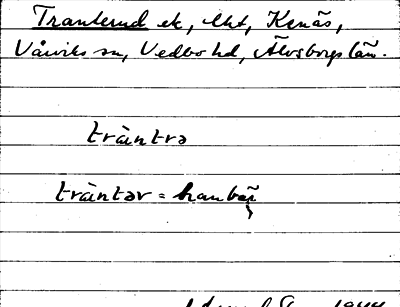 Tranterud ek, lht, Kenäs,
Vårviks sn, Vedbo hd, Älvsborgs län.
tràntrə
tràntər = tranbär